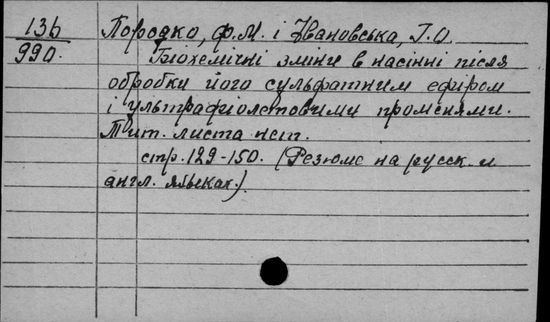 136
990.
Породко, Ф.М. і Івановська, Г.О.
Біохемічні зміни в насінні після
обробки його сульфатним ефіром
і ультрафіолетовими променями.
Тит. листа нет.
стр. 129-150. (Резюме на русск. и
англ. языках.)